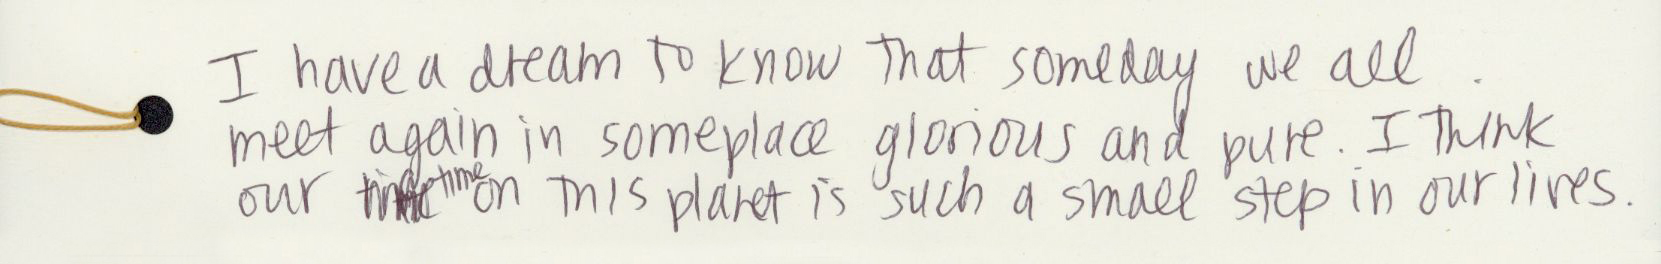 I have a dream to know that someday we all
meet again in someplace glorious and pure. I think
our time on this planet is such a small step in our lives.